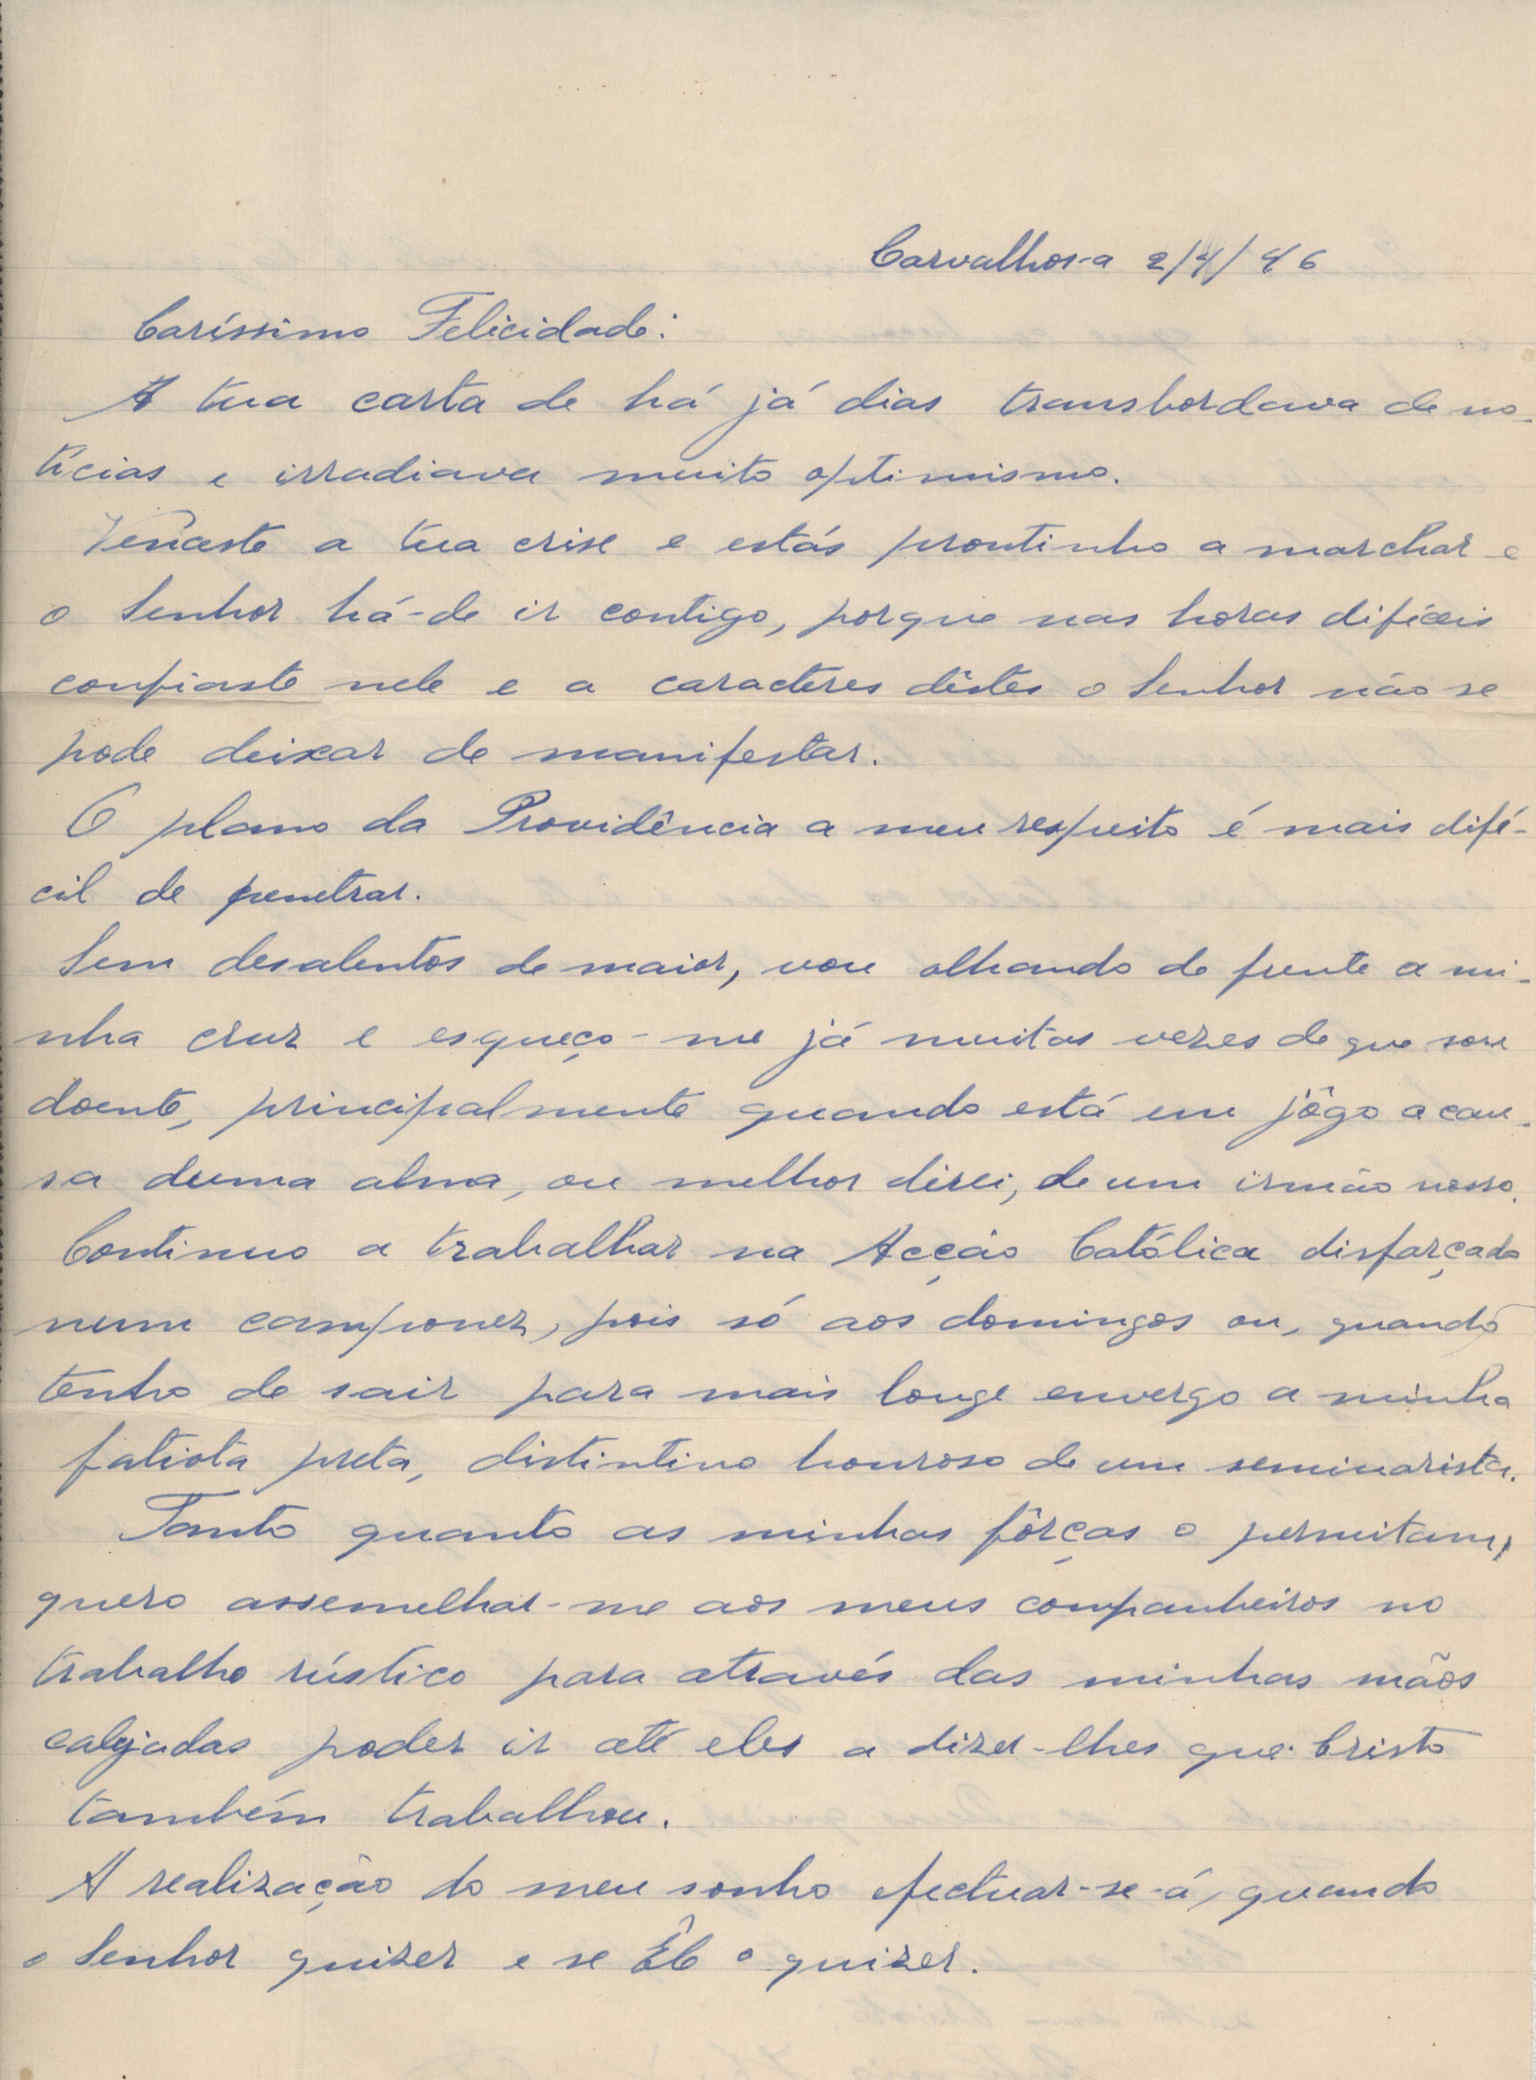 Carvalhosa 2/4/46
Caríssimo Felicidade:
A tua carta de há já dias transbordava de no-
tícias e irradiava muito optimismo.
Venceste a tua crise e estás prontinho a marchar e
o Senhor há-de ir contigo, porque nas horas difíceis
confiaste nele e a caracteres dêstes o Senhor não se
pode deixar de manifestar.
O plano da Providência a meu respeito é mais difí-
cil de penetrar.
Sem desalentos de maior, vou olhando de frente a mi-
nha cruz e esqueço-me já muitas vezes de que sou
doente, principalmente quando está em jôgo a cau-
sa duma alma, ou melhor direi, de um irmão nosso.
Continuo a trabalhar na Acção Católica disfarçado
num camponez, pois só aos domingos ou, quando
tenho de sair para mais longe envergo a minha
fatiota preta, distintivo honroso de um seminarista.
Tanto quanto as minhas fôrças o permitam,
quero assemelhar-me aos meus companheiros no
trabalho rústico para através das minhas mãos
calejadas poder ir até eles a dizer-lhes que Cristo
também trabalhou.
A realização do meu sonho efectuar-se-á, quando
o Senhor quizer e se Êle o quizer.